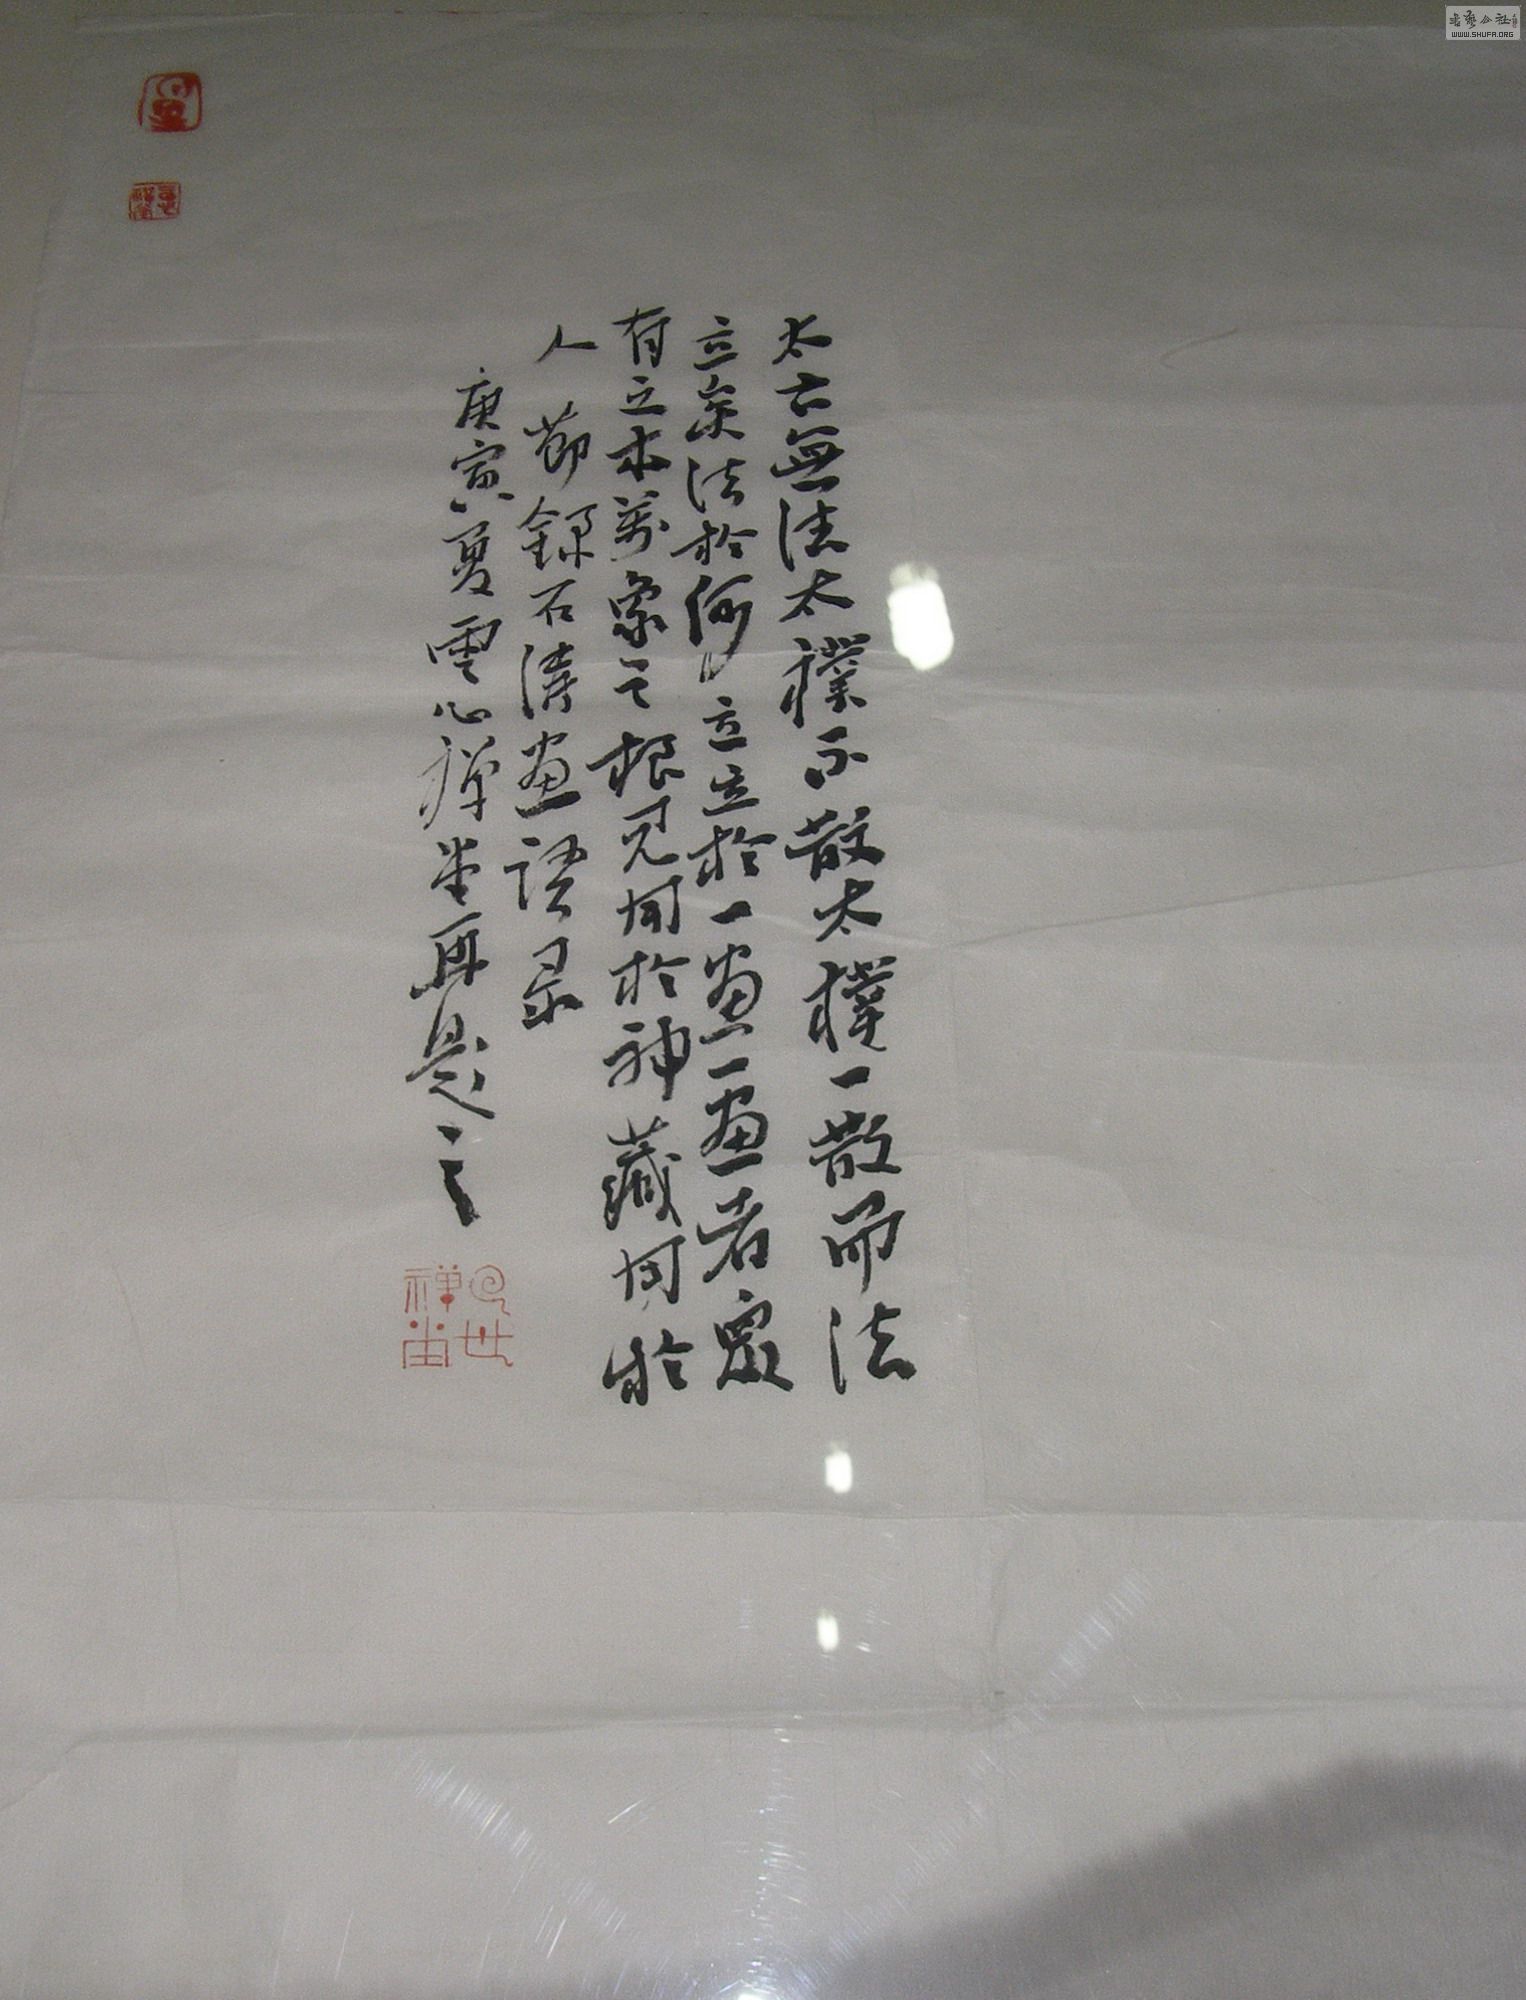 太古無法太樸不散太樸一散而法
立矣法於何立立於一畫一畫者眾
有之本萬象之根見用於神藏用於
人 節錄石濤畫語录
庚寅夏雲心禪堂再題之
禪堂
書藝公社
WWW.SHUFA.ORG